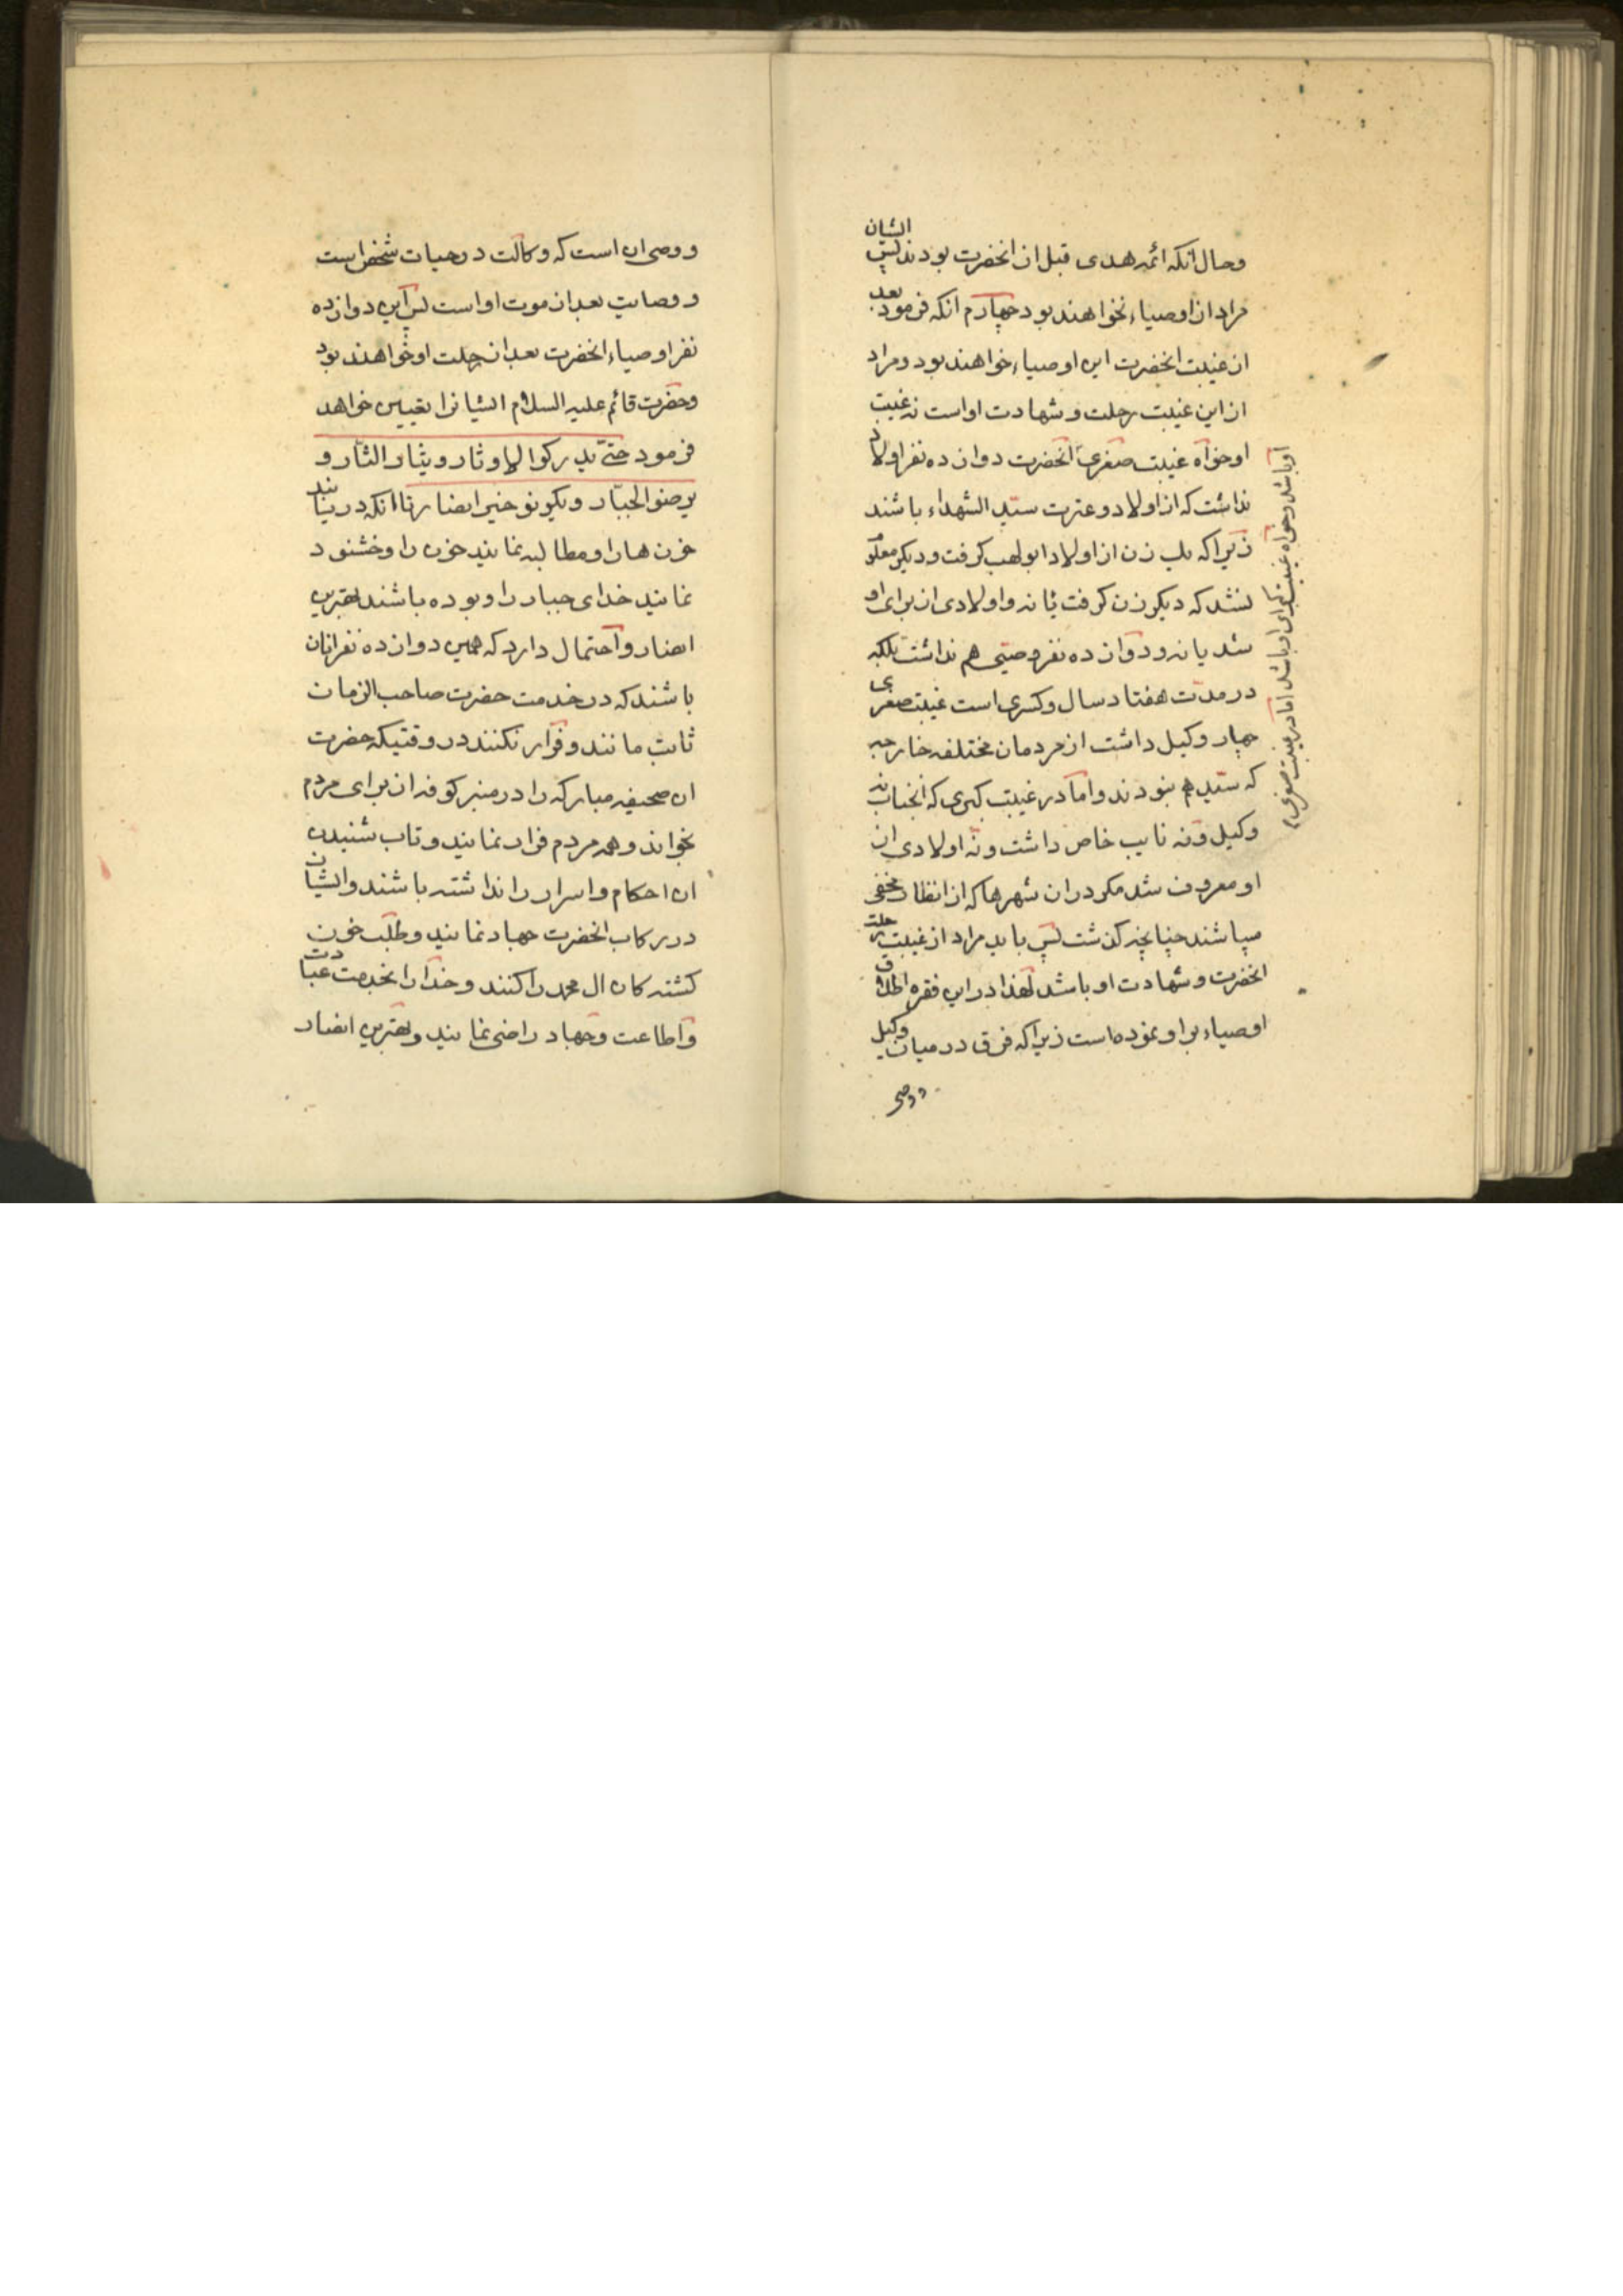 وحال آنکه ائمه هدی قبل از انحضرت بودند پس ایشان
مراد از اوصیاء نخواهند بود چهارم آنکه فرمود بعد
از غیبت انحضرت این اوصیاء خواهند بود و مراد
از این غیبت رحلت و شهادت او است نه غیبت
او خواه غیبت صغری انحضرت دوازده نفر اولاد
نداشت که از اولاد و عترت سید الشهداء باشند
زیرا که یک زن از اولاد ابولهب گرفت و دیگر معلوم
نشد که دیگر زن گرفت یا نه و اولادی از برای او
شد یا نه و دوازده نفر وصیی هم نداشت بلکه
در مدت هفتاد سال و کسری است غیبت صغری
چهار وکیل داشت از مردمان مختلفه خارجه
که سید هم نبودند و اما در غیبت کبری که انجناب نه
وکیل و نه نایب خاص داشت و نه اولادی از
او معروف شد مگر در ان شهرها که از انظار مخفی
میباشند چنانچه گذشت پس باید مراد از غیبت رحلت
انحضرت و شهادت او باشد لهذا در این فقره اطلاق
اوصیاء بر او نموده است زیرا که فرق در میان وکیل
و وصی
او باشد و خواه غیبت کبرای او باشد اما در غیبت صغری
و وصی ان است که وکالت در حیات شخص است
و وصایت بعد از موت او است پس این دوازده
نفر اوصیاء انحضرت بعد از رحلت او خواهند بود
وحضرت قائم علیه السلام ایشانرا تعیین خواهد
فرمود حتی یدرکوا الاوثار و یثار الثار و
یرضوا الجبار و یکونو خیر انصار تا انکه دریابند
خون ها را و مطالبه نمایند خون را و خشنود
نمایند خدای جبار را و بوده باشند بهترین
انصار و احتمال دارد که همین دوازده نفر انان
باشند که در خدمت حضرت صاحب الزمان
ثابت مانند و فرار نکنند در وقتیکه حضرت
ان صحیفه مبارکه را در منبر کوفه از برای مردم
بخواند و همه مردم فرار نمایند و تاب شنیدن
ان احکام و اسرار را نداشته باشند و ایشان
در رکاب انحضرت جهاد نمایند و طلب خون
کشته کان ال محمد را کنند و خدا را بخدمت عبادت
و اطاعت و جهاد راضی نمایند و بهترین انصار